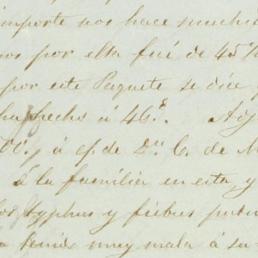 importe nos hace mucha
nos por ella fué de 45%
por este Paquete se dice
ha hecho á 46º. Ay
00., á cf. de Dn. C. de M
á la familia en esta y
los typhus y fiebres putri
a tenido muy mala á su